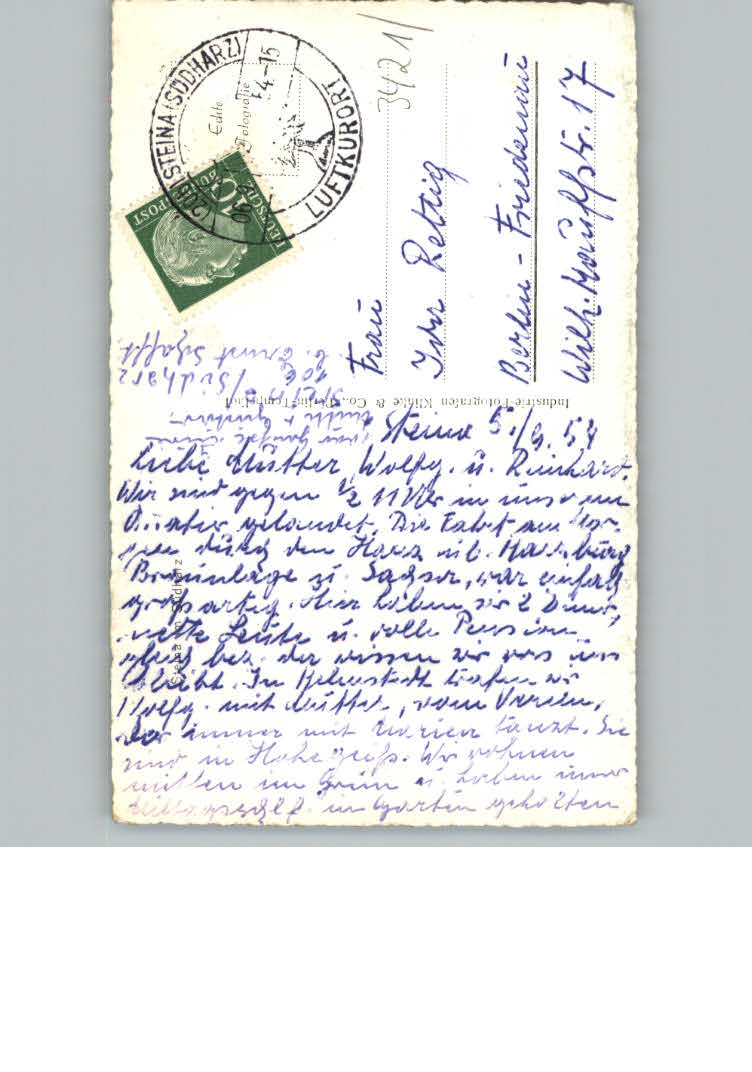 (20b) STEINA (SÜDHARZ)
LUFTKURORT
-4-15
Echte
Fotografie
DEUTSCHE
BUNDESPOST
10
3421/
Frau
Rettig
Berlin - Friedenau
Wilh. Hauffstr. 17
Industrie-Fotografen Klinke & Co., Berlin-Tempelhof
Steina im Südharz
Steina 5./9. 54
Liebe Mutter, Wolfg. u. Reinhard.
Wir sind gegen ½ 11 Uhr in unserem
Quartier gelandet. Die Fahrt am
durch den Harz üb. Harzburg
Braunlage u. Sachsa, war einfach
großartig. Hier haben wir 2 Zimmer,
nette Leute u. volle Pension
gleich bez. da wissen wir was uns
bleibt. In Helmstedt trafen wir
Wolfg. mit Mutter, vom Verein,
der immer mit Marion tanzt. Sie
sind in Hohegeiß. Wir wohnen
mitten im Grün u. haben
im Garten gehalten
Steina
/Südharz
b. Ernst